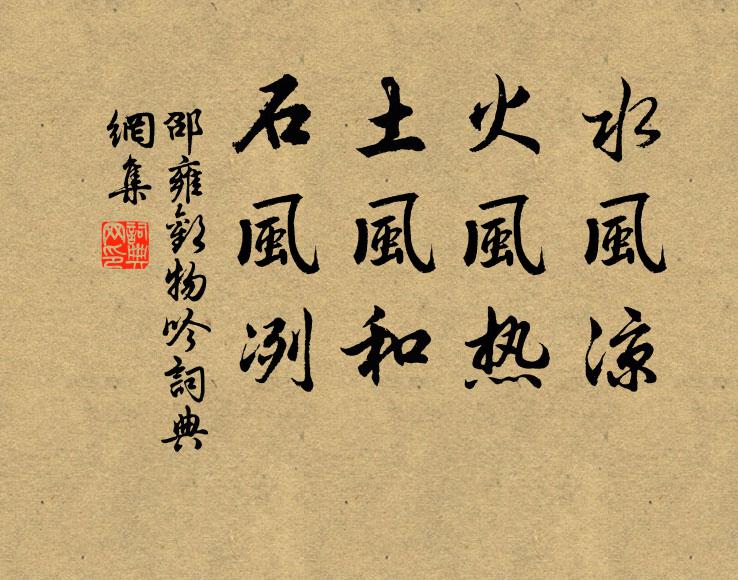 水風凉
火風热
土風和
石風冽
邵雍觀物吟詞典
網集
詞典
网印